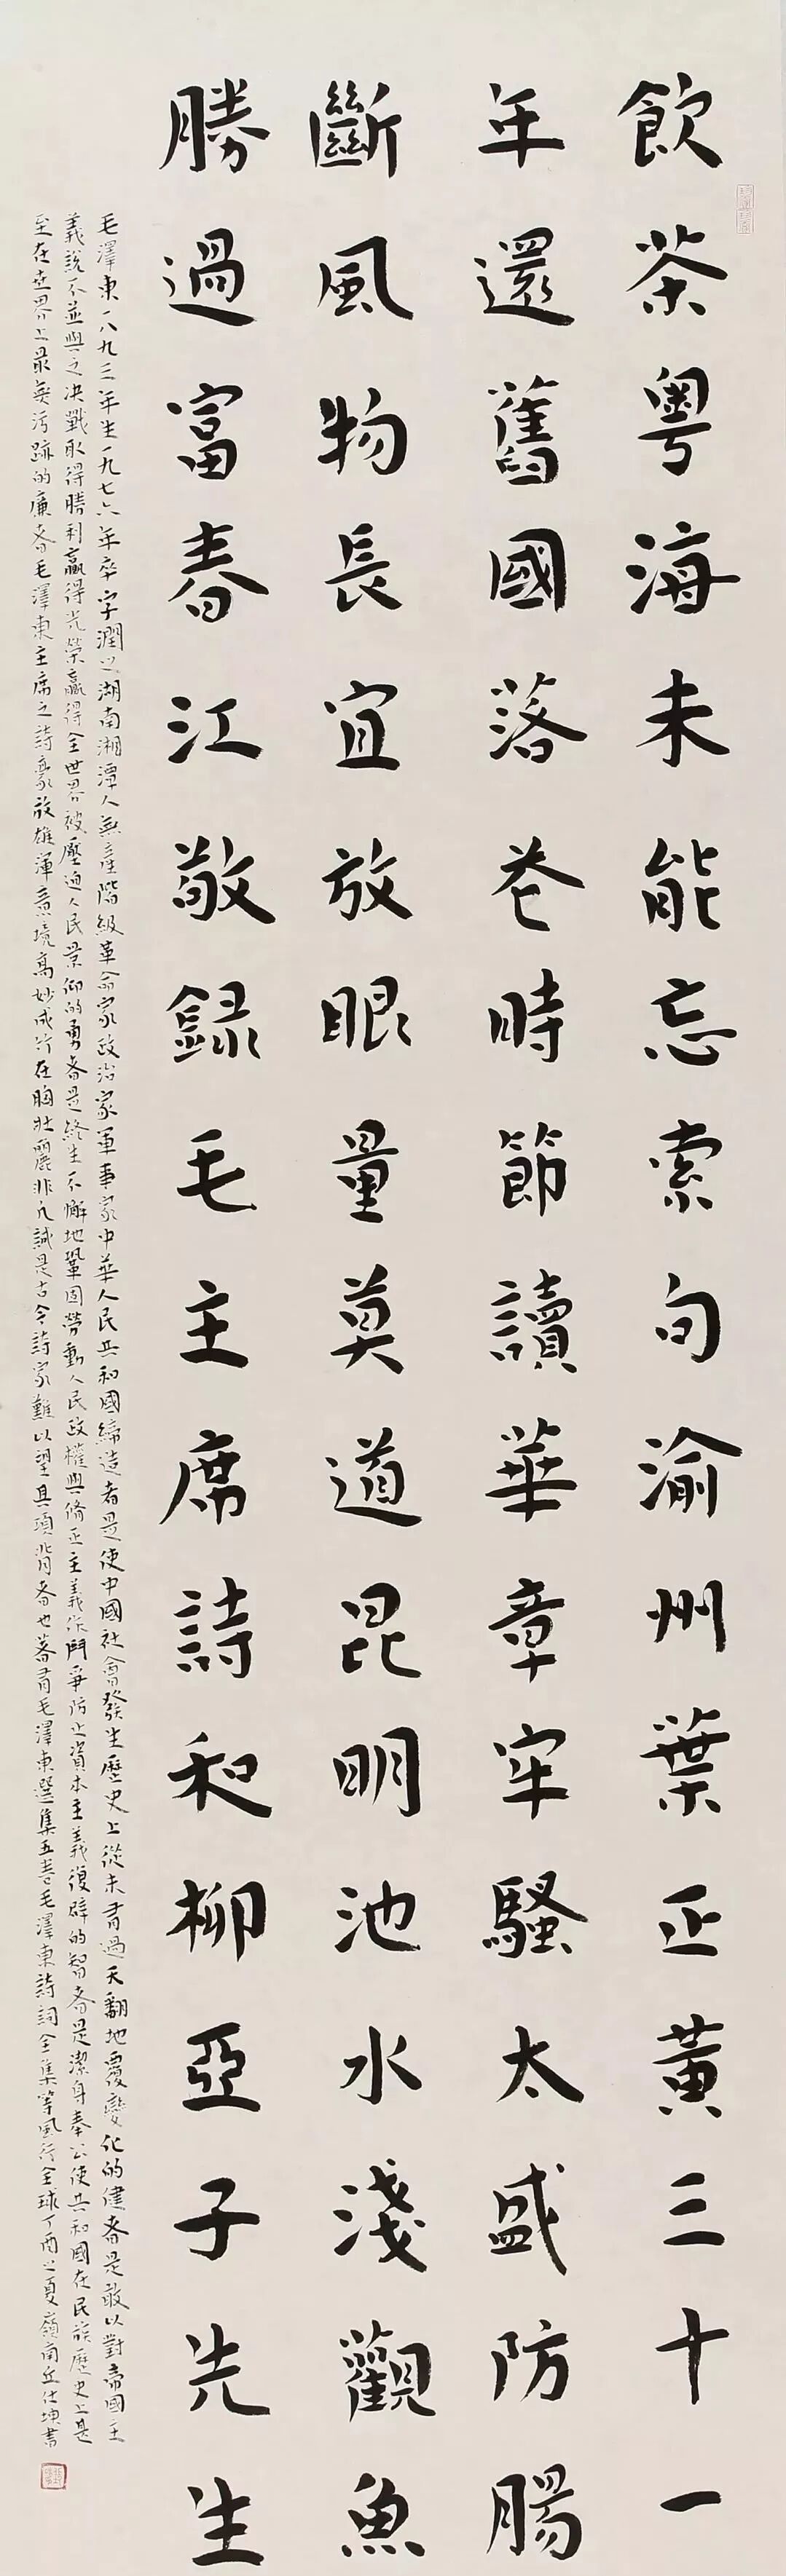 飲茶粵海未能忘索句渝州葉正黃三十一
年還舊國落花時節讀華章牢騷太盛防腸
斷風物長宜放眼量莫道昆明池水淺觀魚
勝過富春江敬録毛主席詩和柳亞子先生
毛澤東一八九三年生一九七六年卒字潤之湖南湘潭人無產階級革命家政治家軍事家中華人民共和國締造者是使中國社會發生歷史上從未有過天翻地覆變化的健者是敢以對帝國主
義說不並與之决戰取得勝利贏得光榮贏得全世界被壓迫人民景仰的勇者是終生不懈地鞏固勞動人民政權與修正主義作鬥爭防止資本主義復辟的智者是潔身奉公使共和國在民族歷史上甚
至在世界上最無污跡的廉者毛澤東主席之詩豪放雄渾意境高妙成竹在胸壯麗非凡誠是古今詩家難以望其項背者也著有毛澤東選集五卷毛澤東詩詞全集等風行全球丁酉之夏嶺南丘仕坤書